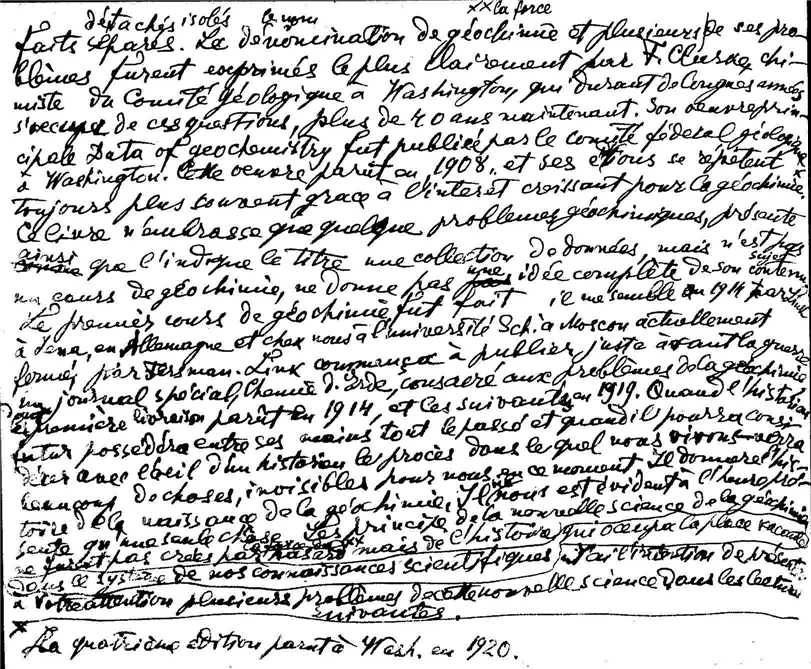 détachés isolés le nom xx la force
faits séparés. La dénomination de géochimie et plusieurs de ses pro-
blèmes furent exprimés le plus clairement par F. Clarke, chi-
miste du Comité géologique à Washington, qui durant de longues années
s'occupe de ces questions, plus de 40 ans maintenant. Son oeuvre prin-
cipale Data of geochemistry fut publiée par le comité fédéral géologique
à Washington. Cette oeuvre parut en 1908, et ses se répètent
toujours plus souvent grace à l'interet croissant pour la géochimie
Ce livre n'embrasse que quelque problemes géochimiques, présente
ainsi que l'indique le titre une collection de données, mais n'est pas
un cours de géochimie, ne donne pas une idée complète de son contenu
Le premier cours de géochimie fut fait il me semble en 1914 par Linck
à Jena, en Allemagne et chez nous à l'université Sch. à Moscou actuellement
fermée par Fersman. Link commença à publier juste avant la guerre
un journal spécial, Chemie d. Erde, consacré aux problèmes de la géochimie
dont la première livraison parut en 1914, et les suivantes en 1919. Quand l'historien
futur possèdera entre ses mains tout le passé et quand il pourra consi-
dérer avec l'oeil d'un historien le procès dans lequel nous vivons verra
beaucoup de choses, invisibles pour nous en ce moment. Il donnera l'his-
toire de la naissance de la géochimie. Il nous est évident à l'heure pré-
sente qu'une seule chose. Les principe de la nouvelle science de la géochimie
ne furent pas créés par hasard mais de l'histoire qui occupa la place vacante
dans le système de nos connaissances scientifiques J'ai l'intention de présent
à votre attention plusieurs problemes de cette nouvelle science dans les lectures
suivantes.
x La quatrième édition parut à Wash. en 1920.